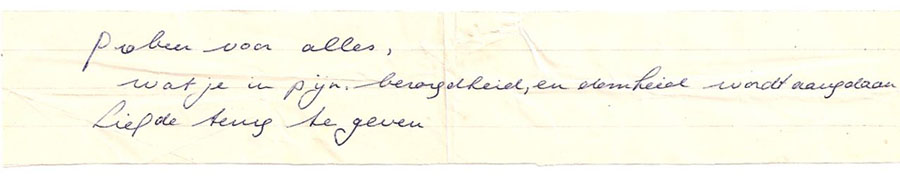 Probeer voor alles,
wat je in pijn, bezorgdheid, en domheid wordt aangedaan
Liefde terug te geven